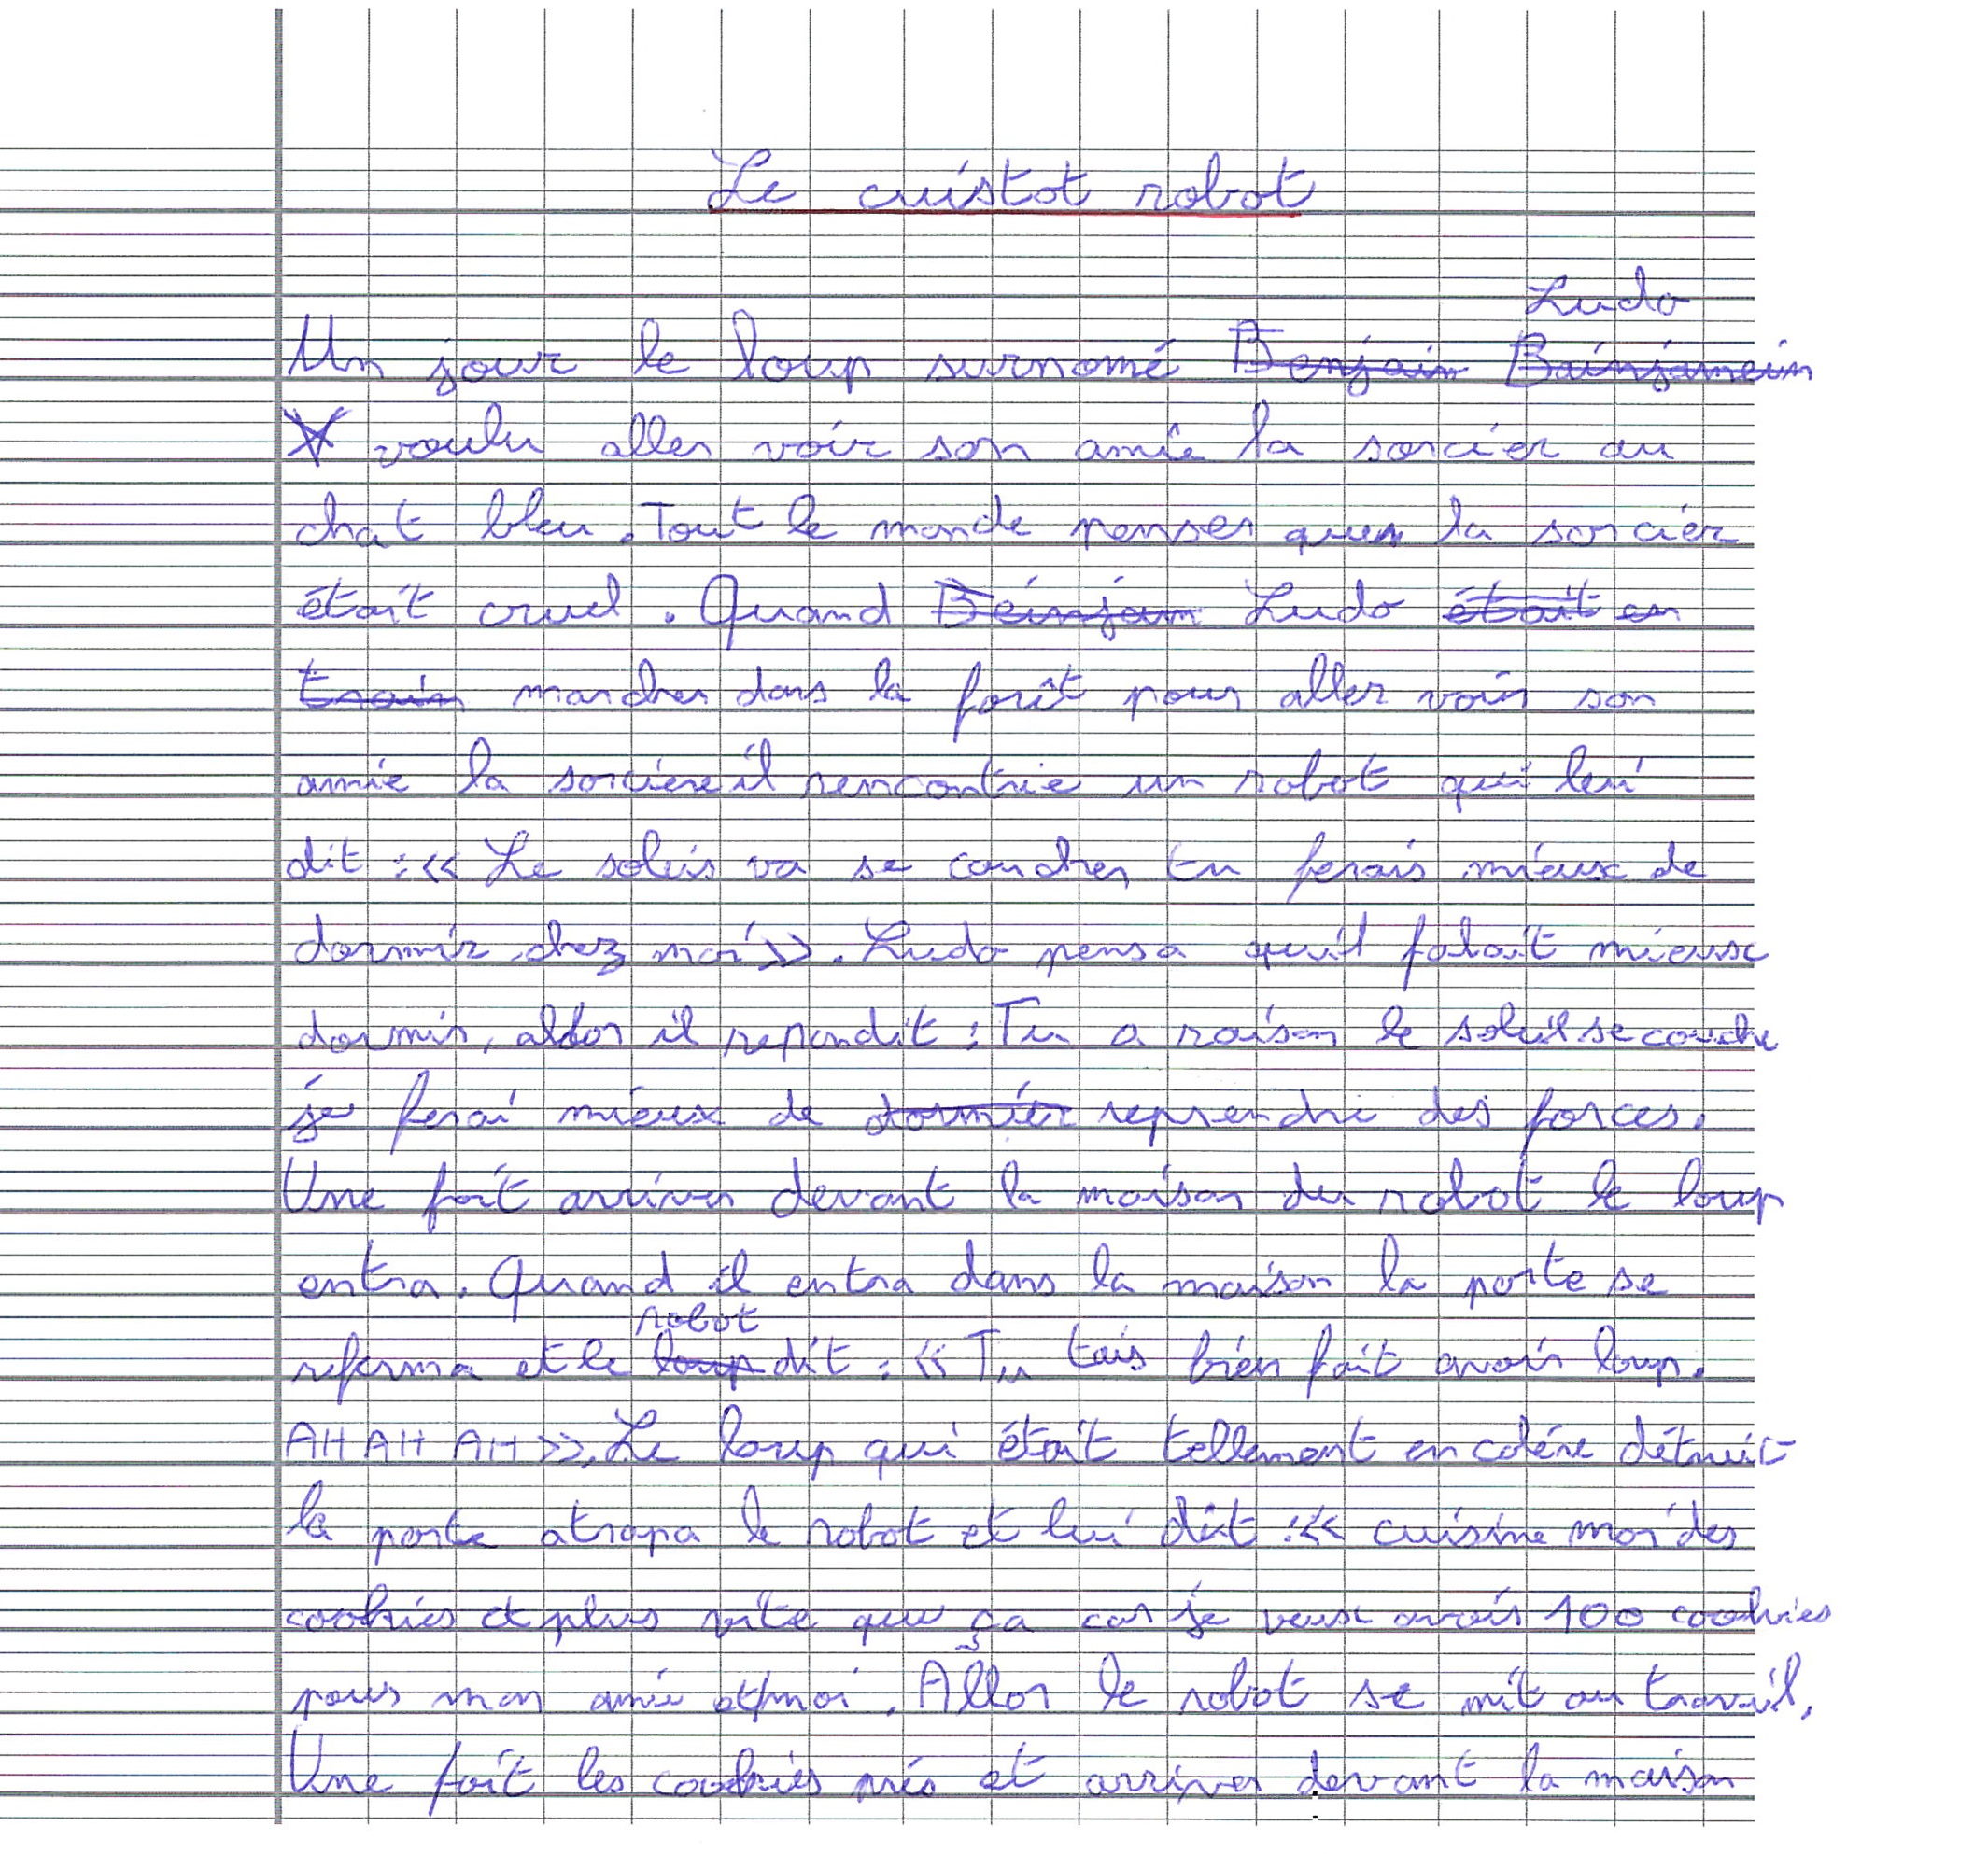 Le cuistot robot
Ludo
Un jour le loup surnomé Benjain Bainjamein
voulu aller voir son amie la sorcier au
chat bleu. Tout le monde penser que la sorcier
était cruel. Quand Beinjam Ludo était en
train marcher dans la forêt pour aller voir son
amie la sorciere il rencontrie un robot qui lui
dit : « Le soleis va se coucher tu ferais mieux de
dormir chez moi ». Ludo pensa qu'il falait mieux
dormir, allor il repondit : Tu a raison le soleil se couche
je ferai mieux de dormier reprendre des forces.
Une foit arriver devant la maison du robot le loup
entra. Quand il entra dans la maison la porte se
robot
referma et le loup dit : « Tu tais bien fait avoir loup.
AH AH AH ». Le loup qui était tellement en colére détruit
la porte atrapa le robot et lui dit : « cuisine moi des
cookies et plus vite que ça car je veux avoir 100 cookies
pour mon amie et moi. Allor le robot se mit au travail.
Une foit les cookies pris et arriver devant la maison